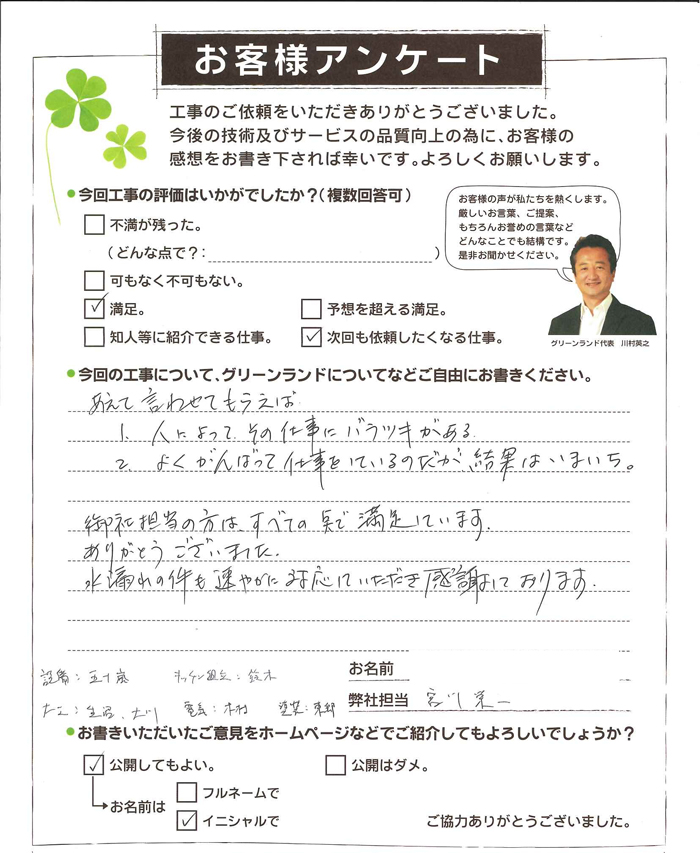 お客様アンケート
工事のご依頼をいただきありがとうございました。
今後の技術及びサービスの品質向上の為に、お客様の
感想をお書き下されば幸いです。よろしくお願いします。
今回工事の評価はいかがでしたか？（複数回答可）
不満が残った。
（どんな点で？：　）
可もなく不可もない。
満足。　予想を超える満足。
知人等に紹介できる仕事。　次回も依頼したくなる仕事。
お客様の声が私たちを熱くします。
厳しいお言葉、ご提案、
もちろんお誉めの言葉など
どんなことでも結構です。
是非お聞かせください。
グリーンランド代表　川村英之
今回の工事について、グリーンランドについてなどご自由にお書きください。
あえて言わせてもらえば
1. 人によって その仕事にバラツキがある。
2. よくがんばって仕事をているのだが 結果はいまいち。
御社担当の方は すべての点で 満足ています.
ありがとうございました.
水漏れの件も速やかに対応ていただき感謝ております.
設備：五十嵐　キッチン組立：鈴木
お名前
大工：　電気：木村　塗装：
弊社担当　宮川
お書きいただいたご意見をホームページなどでご紹介してもよろしいでしょうか？
公開してもよい。　公開はダメ。
お名前は　フルネームで
イニシャルで
ご協力ありがとうございました。